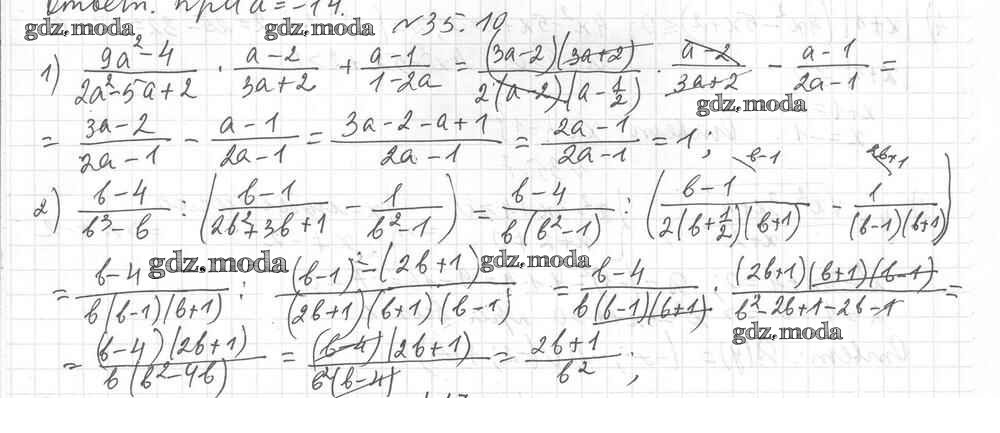 Ответ: при a = -14.
gdz.moda gdz.moda №35.10
1) (9a²-4)/(2a²-5a+2) · (a-2)/(3a+2) + (a-1)/(1-2a) = (3a-2)(3a+2)/(2(a-2)(a-1/2)) · (a-2)/(3a+2) - (a-1)/(2a-1) =
gdz.moda
= (3a-2)/(2a-1) - (a-1)/(2a-1) = (3a-2-a+1)/(2a-1) = (2a-1)/(2a-1) = 1;
2) (b-4)/(b³-b) : ((b-1)/(2b²+3b+1) - 1/(b²-1)) = (b-4)/(b(b²-1)) : ((b-1)/(2(b+1/2)(b+1)) \b-1 - 1/((b-1)(b+1)) \2b+1)
gdz.moda gdz.moda
= (b-4)/(b(b-1)(b+1)) : ((b-1)²-(2b+1))/((2b+1)(b+1)(b-1)) = (b-4)/(b(b-1)(b+1)) · (2b+1)(b+1)(b-1)/(b²-2b+1-2b-1) =
gdz.moda
= (b-4)(2b+1)/(b(b²-4b)) = (b-4)(2b+1)/(b²(b-4)) = (2b+1)/b²;